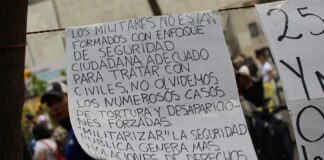 LOS MILITARES NO ESTÁN
FORMADOS CON ENFOQUE
DE SEGURIDAD
CIUDADANA ADECUADO
PARA TRATAR CON
CIVILES, NO OLVIDEMOS
LOS NUMEROSOS CASOS
DE TORTURA Y DESAPARICIO-
NES FORZADAS.
"MILITARIZAR" LA SEGURIDAD
PÚBLICA GENERA MÁS
VIOLACIONES DE DERECHOS
25
Y N